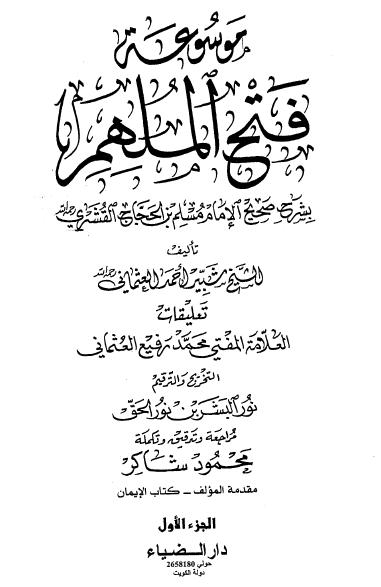 موسوعة
فتح الملهم
بشرح صحيح الإمام مسلم بن الحجاج القشيري رحمه الله
تأليف
الشيخ شبير أحمد العثماني رحمه الله
تعليقات
العلامة المفتي محمد رفيع العثماني
التخريج والترقيم
نور البشر بن نور الحق
مراجعة وتدقيق وتكملة
محمود شاكر
مقدمة المؤلف – كتاب الإيمان
الجزء الأول
دار الضياء
حولي 2658180
دولة الكويت